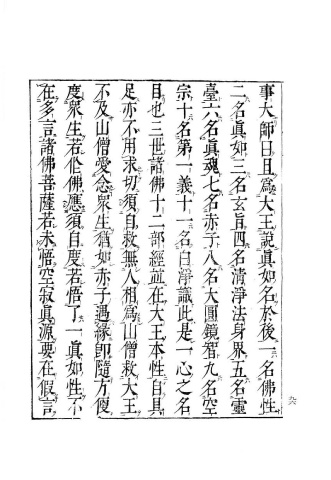 事大師曰且爲大王說眞如名於後一名佛性
二名眞如三名玄旨四名清淨法身界五名靈
臺六名眞魂七名赤子八名大圓鏡智九名空
宗十名第一義十一名白淨識此是一心之名
目也三世諸佛十二部經並在大王本性自具
足亦不用求切須自救無人相爲山僧救大王
不及山僧愛念衆生猶如赤子遇緣即隨方便
度衆生若作佛應須自度若悟了一眞如性不
在多言諸佛菩薩若未悟空寂眞源要在假言
九六